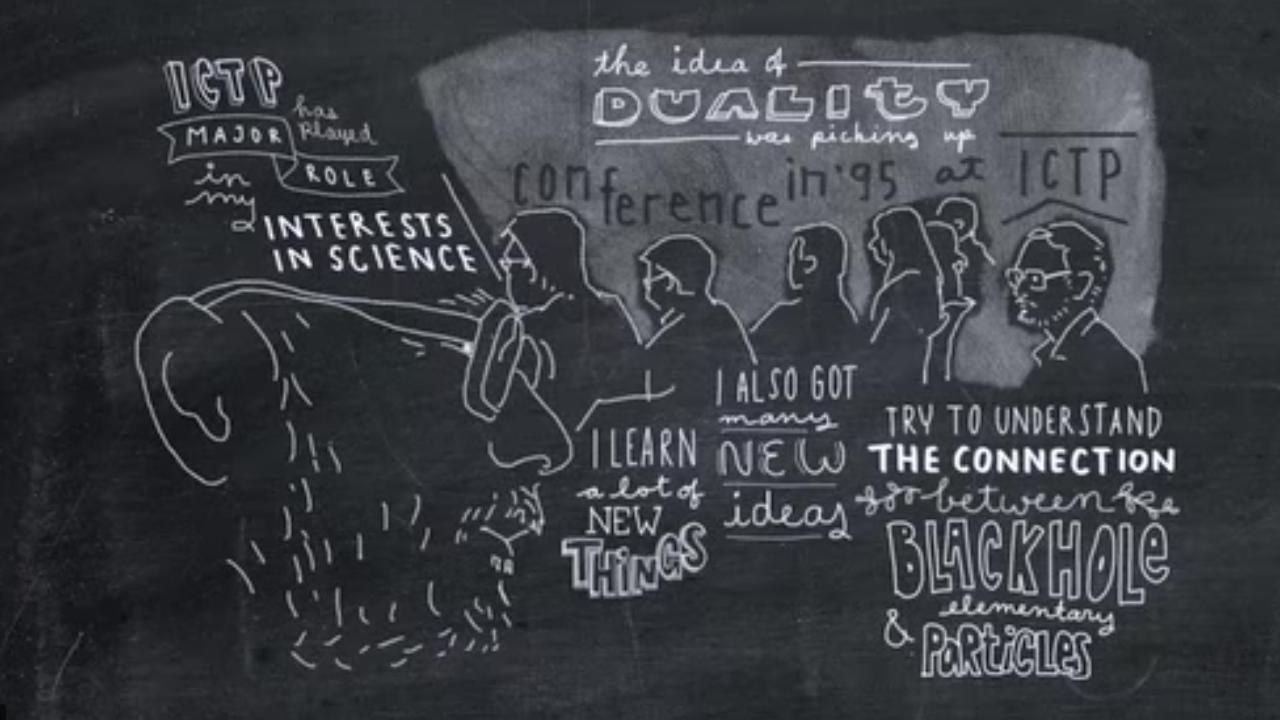 ICTP
has
Played
MAJOR
ROLE
in
my
INTERESTS
IN SCIENCE
the idea of
DUALITY
was picking up
conference in '95 at ICTP
I LEARN
a lot of
NEW
THINGS
I ALSO GOT
many
NEW
ideas
TRY TO UNDERSTAND
THE CONNECTION
between
BLACKHOLe
& elementary
PaRTiCLeS